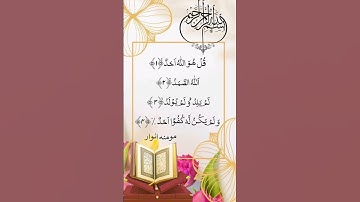 بسم الله الرحمن الرحيم
قُلْ هُوَ اللّٰهُ اَحَدٌ ﴿۱﴾
اَللّٰهُ الصَّمَدُ ﴿۲﴾
لَمْ یَلِدْ وَ لَمْ یُوْلَدْ ﴿۳﴾
وَ لَمْ یَكُنْ لَّهٗ كُفُوًا اَحَدٌ ﴿۴﴾
مومنہ انوار